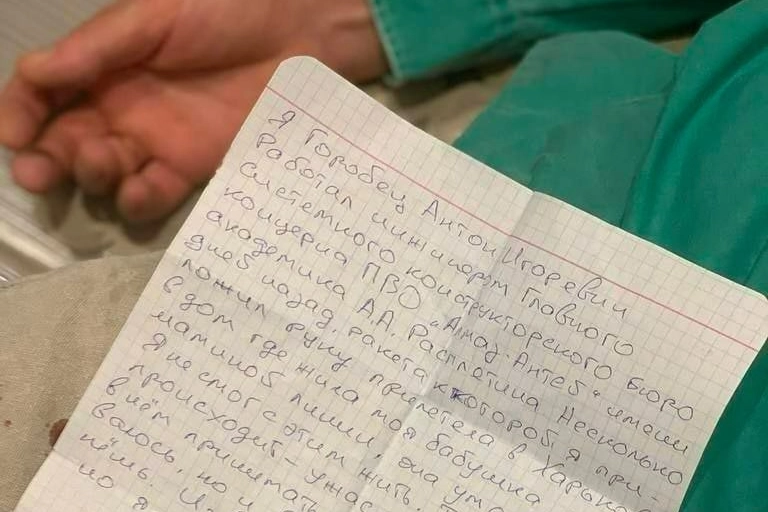 Я Горобец Антон Игоревич
Работал инжинером Главного
системного конструкторского бюро
концерна ПВО "Алмаз-Антей" имени
академика А.А. Расплетина Несколько
дней назад, ракета к которой я при-
ложил руку прилетела в Харьков
в дом где жила моя бабушка
маминой линии, она ум
Я не смог с этим жить.
происходит - ужас
в нём принимать
валось, но и
нёшь. И
но я